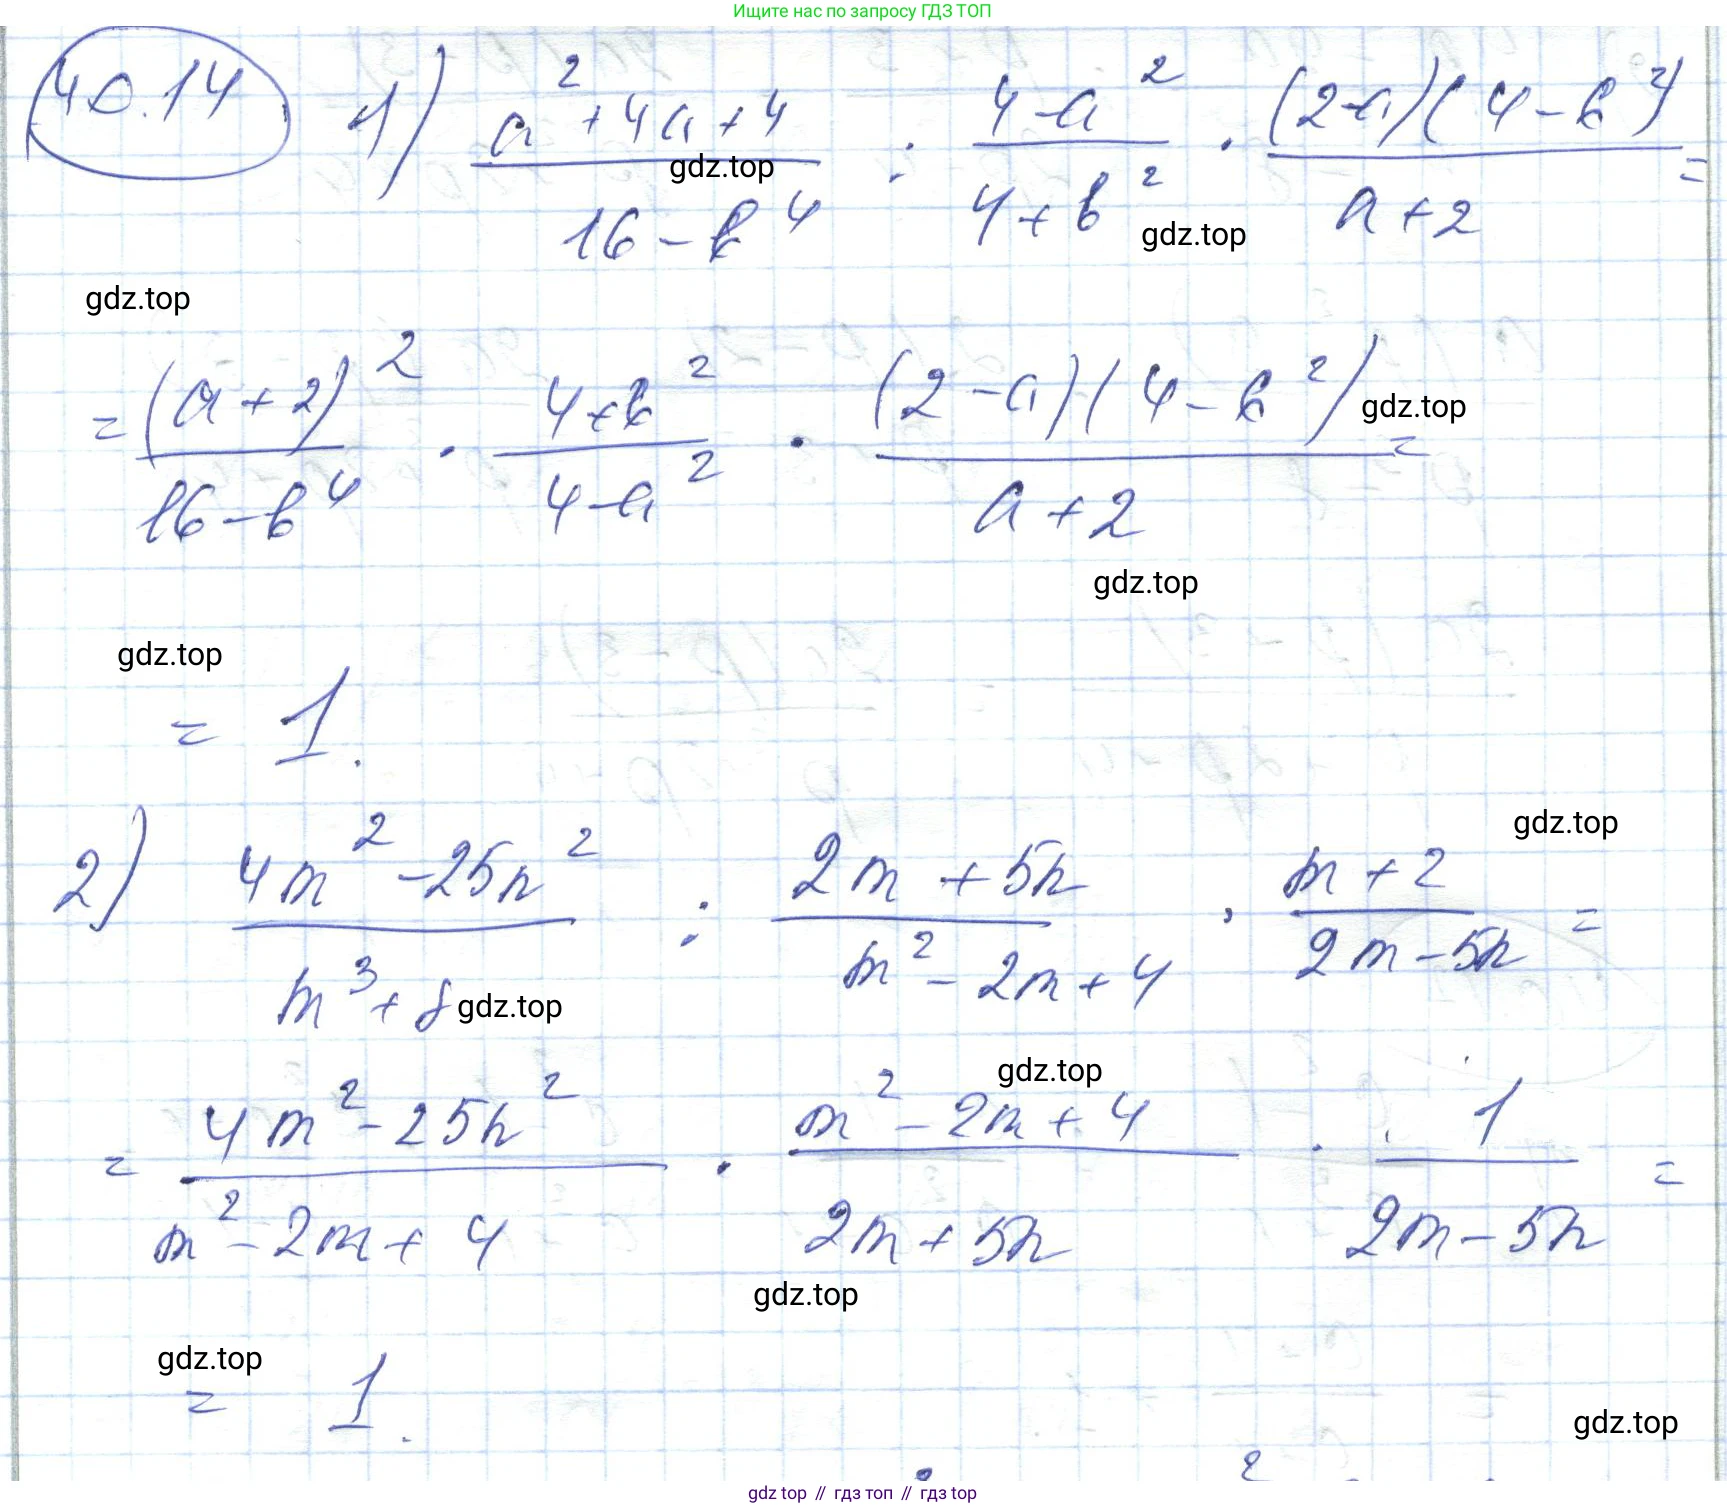 Ищите нас по запросу ГДЗ ТОП
40.14 1) (a² + 4a + 4)/(16 - b⁴) : (4 - a²)/(4 + b²) · ((2-a)(4 - b²))/(a + 2) =
gdz.top
gdz.top
gdz.top
= (a + 2)²/(16 - b⁴) · (4 + b²)/(4 - a²) · ((2 - a)(4 - b²))/(a + 2) =
gdz.top
gdz.top
gdz.top
= 1.
2) (4m² - 25n²)/(m³ + 8) : (2m + 5n)/(m² - 2m + 4) · (m + 2)/(2m - 5n) =
gdz.top
gdz.top
gdz.top
= (4m² - 25n²)/(m² - 2m + 4) · (m² - 2m + 4)/(2m + 5n) · 1/(2m - 5n) =
gdz.top
gdz.top
= 1.
gdz.top
gdz top // гдз топ // гдз top